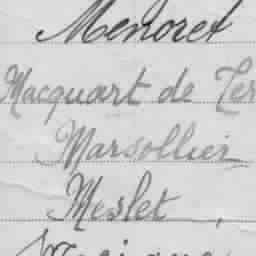 Menoret
Macquart de Ter
Marsollier
Meslet,